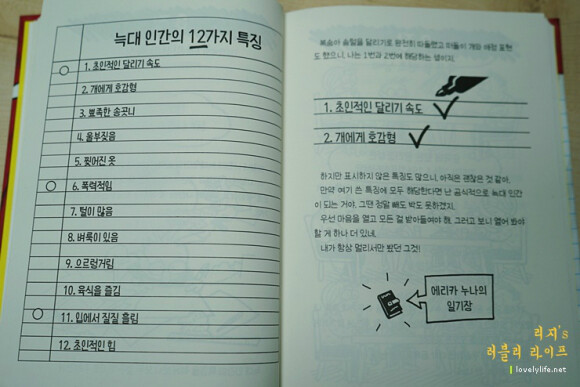 늑대 인간의 12가지 특징
1. 초인적인 달리기 속도
2. 개에게 호감형
3. 뾰족한 송곳니
4. 울부짖음
5. 찢어진 옷
6. 폭력적임
7. 털이 많음
8. 벼룩이 있음
9. 으르렁거림
10. 육식을 즐김
11. 입에서 질질 흘림
12. 초인적인 힘
복숭아 솜털을 달리기로 완전히 따돌렸고 떠돌이 개와 애정 표현
도 했으니, 나는 1번과 2번에 해당하는 셈이지.
1. 초인적인 달리기 속도
2. 개에게 호감형
하지만 표시하지 않은 특징도 많으니, 아직은 괜찮은 것 같아.
만약 여기 쓴 특징에 모두 해당한다면 난 공식적으로 늑대 인간
이 되는 거야. 그땐 정말 빼도 박도 못하겠지.
우선 마음을 열고 모든 걸 받아들여야 해. 그러고 보니 열어 봐야
할 게 하나 더 있네.
내가 항상 멀리서만 봤던 그것!
에리카 누나의
일기장
리지's
러블리 라이프
lovelylife.net